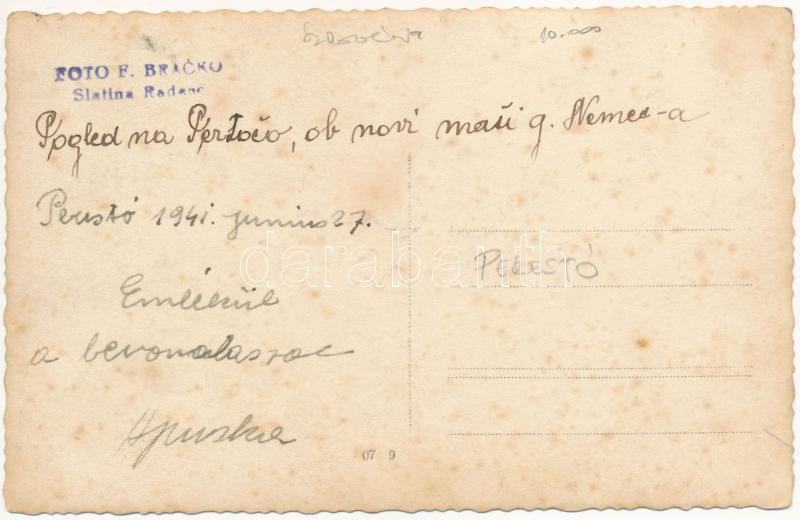 10.000
FOTO F. BRAČKO
Slatina Radenc
Pogled na Pertočo, ob novi maši g. Nemec-a
Perestó 1941. junius 27.
PERESTÓ
Emlékül
a bevonulasrol
Apuska
07 9
darabanth